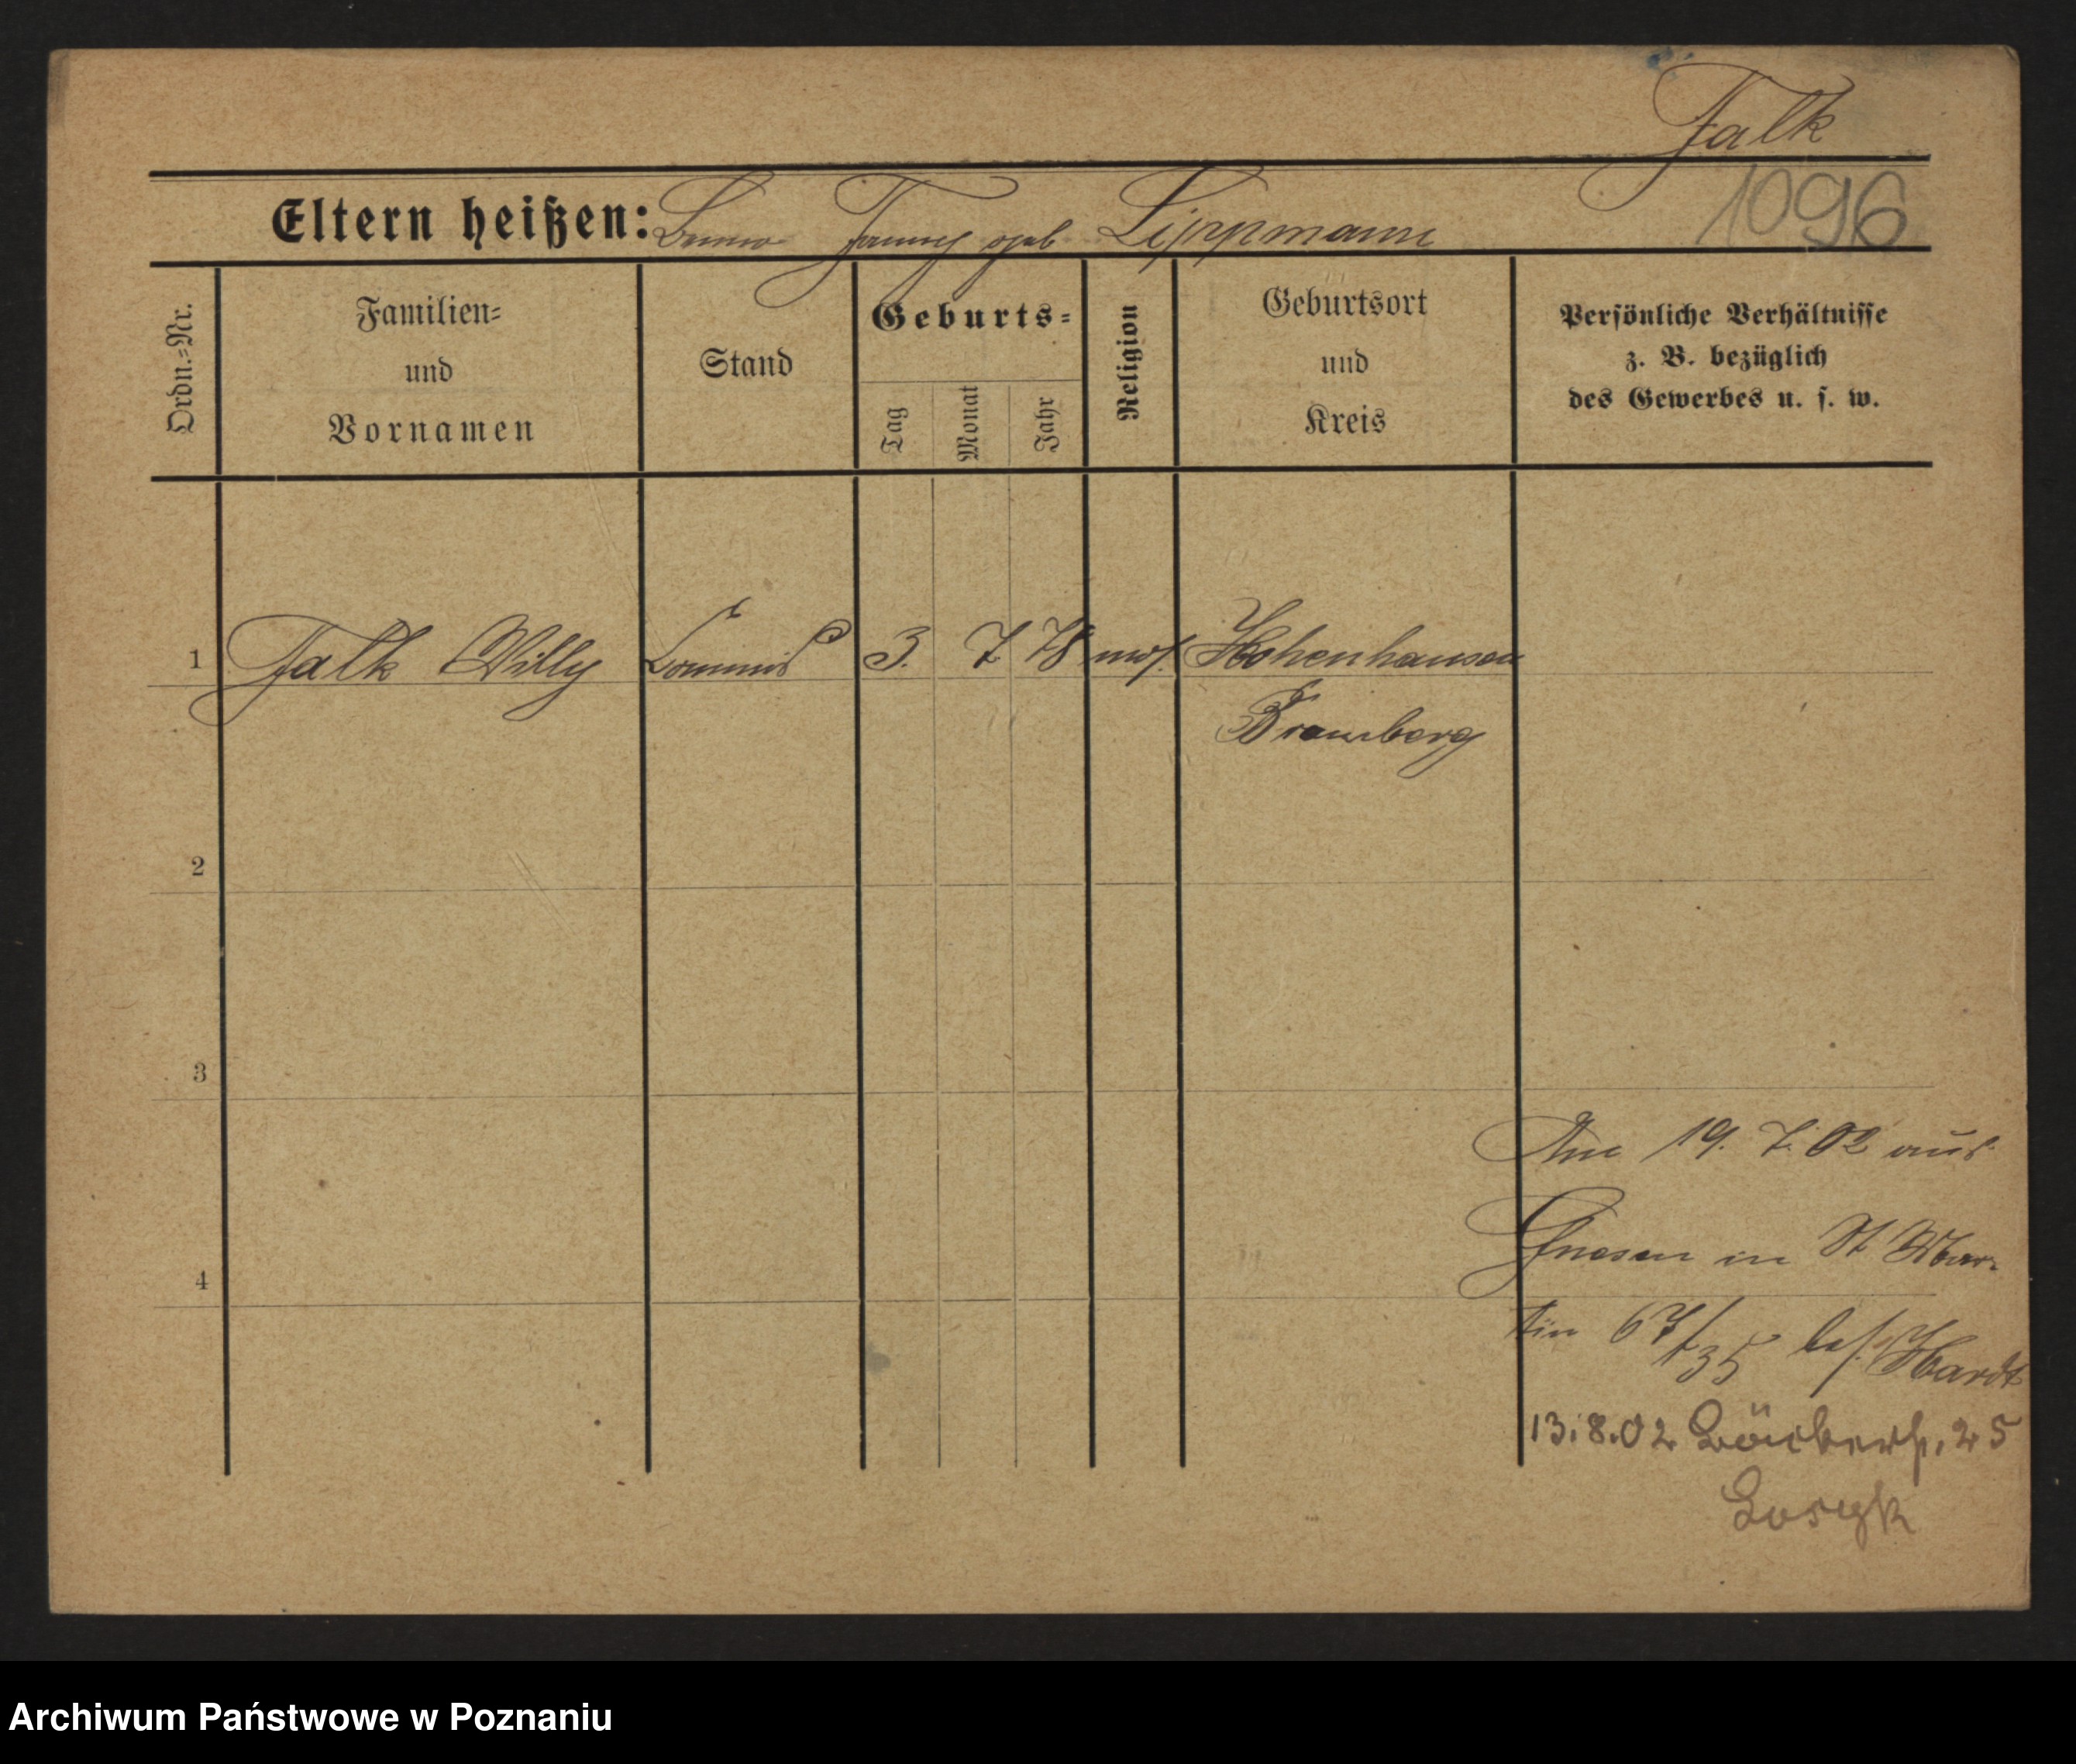 Falk
1096
Eltern heißen: Fanny geb Lippmann
Ordn.=Nr.
Familien=
und
Vornamen
Stand
Geburts=
Tag
Monat
Jahr
Religion
Geburtsort
und
Kreis
Persönliche Verhältnisse
z. B. bezüglich
des Gewerbes u. s. w.
1 Falk Willy Commis 3. 7 78 mos. Hohenhausen
Bromberg
2
3
4
Am 19. 7. 02 aus
Gnesen in St Mar-
tin 67/35 bei Hardt
13.8.02 25